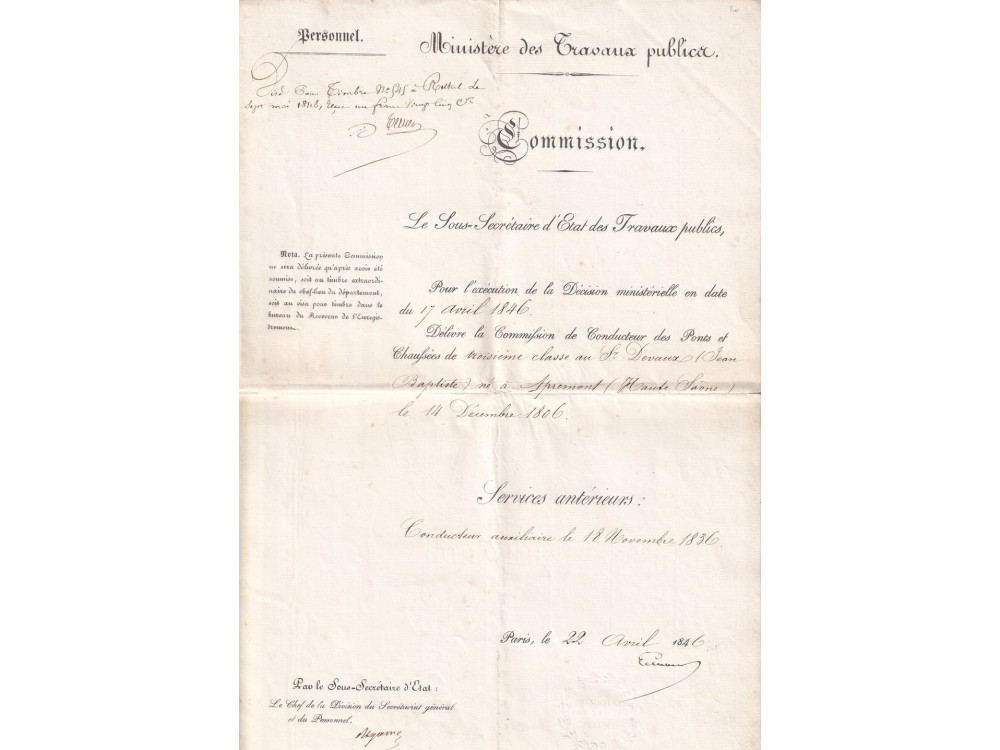 Personnel.
Ministère des Travaux publics.
Visé pour Timbre No 545 à
mai 1846, Reçu un franc vingt cinq Cs
Commission.
Le Sous-Secrétaire d'Etat des Travaux publics,
Nota. La présente Commission
ne sera délivrée qu'après avoir été
soumise, soit au timbre extraordi-
naire du chef-lieu du département,
soit au visa pour timbre dans le
bureau du Receveur de l'Enregis-
trement.
Pour l'exécution de la Décision ministérielle en date
du 17 avril 1846.
Délivre la Commission de Conducteur des Ponts et
Chaussées de troisième classe au Sr. Devaux (Jean
Baptiste) né à Apremont (Haute Saône)
le 14 Décembre 1806.
Services antérieurs:
Conducteur auxiliaire le 18 Novembre 1836.
Paris, le 22 Avril 1846.
Par le Sous-Secrétaire d'Etat:
Le Chef de la Division du Secrétariat général
et du Personnel,